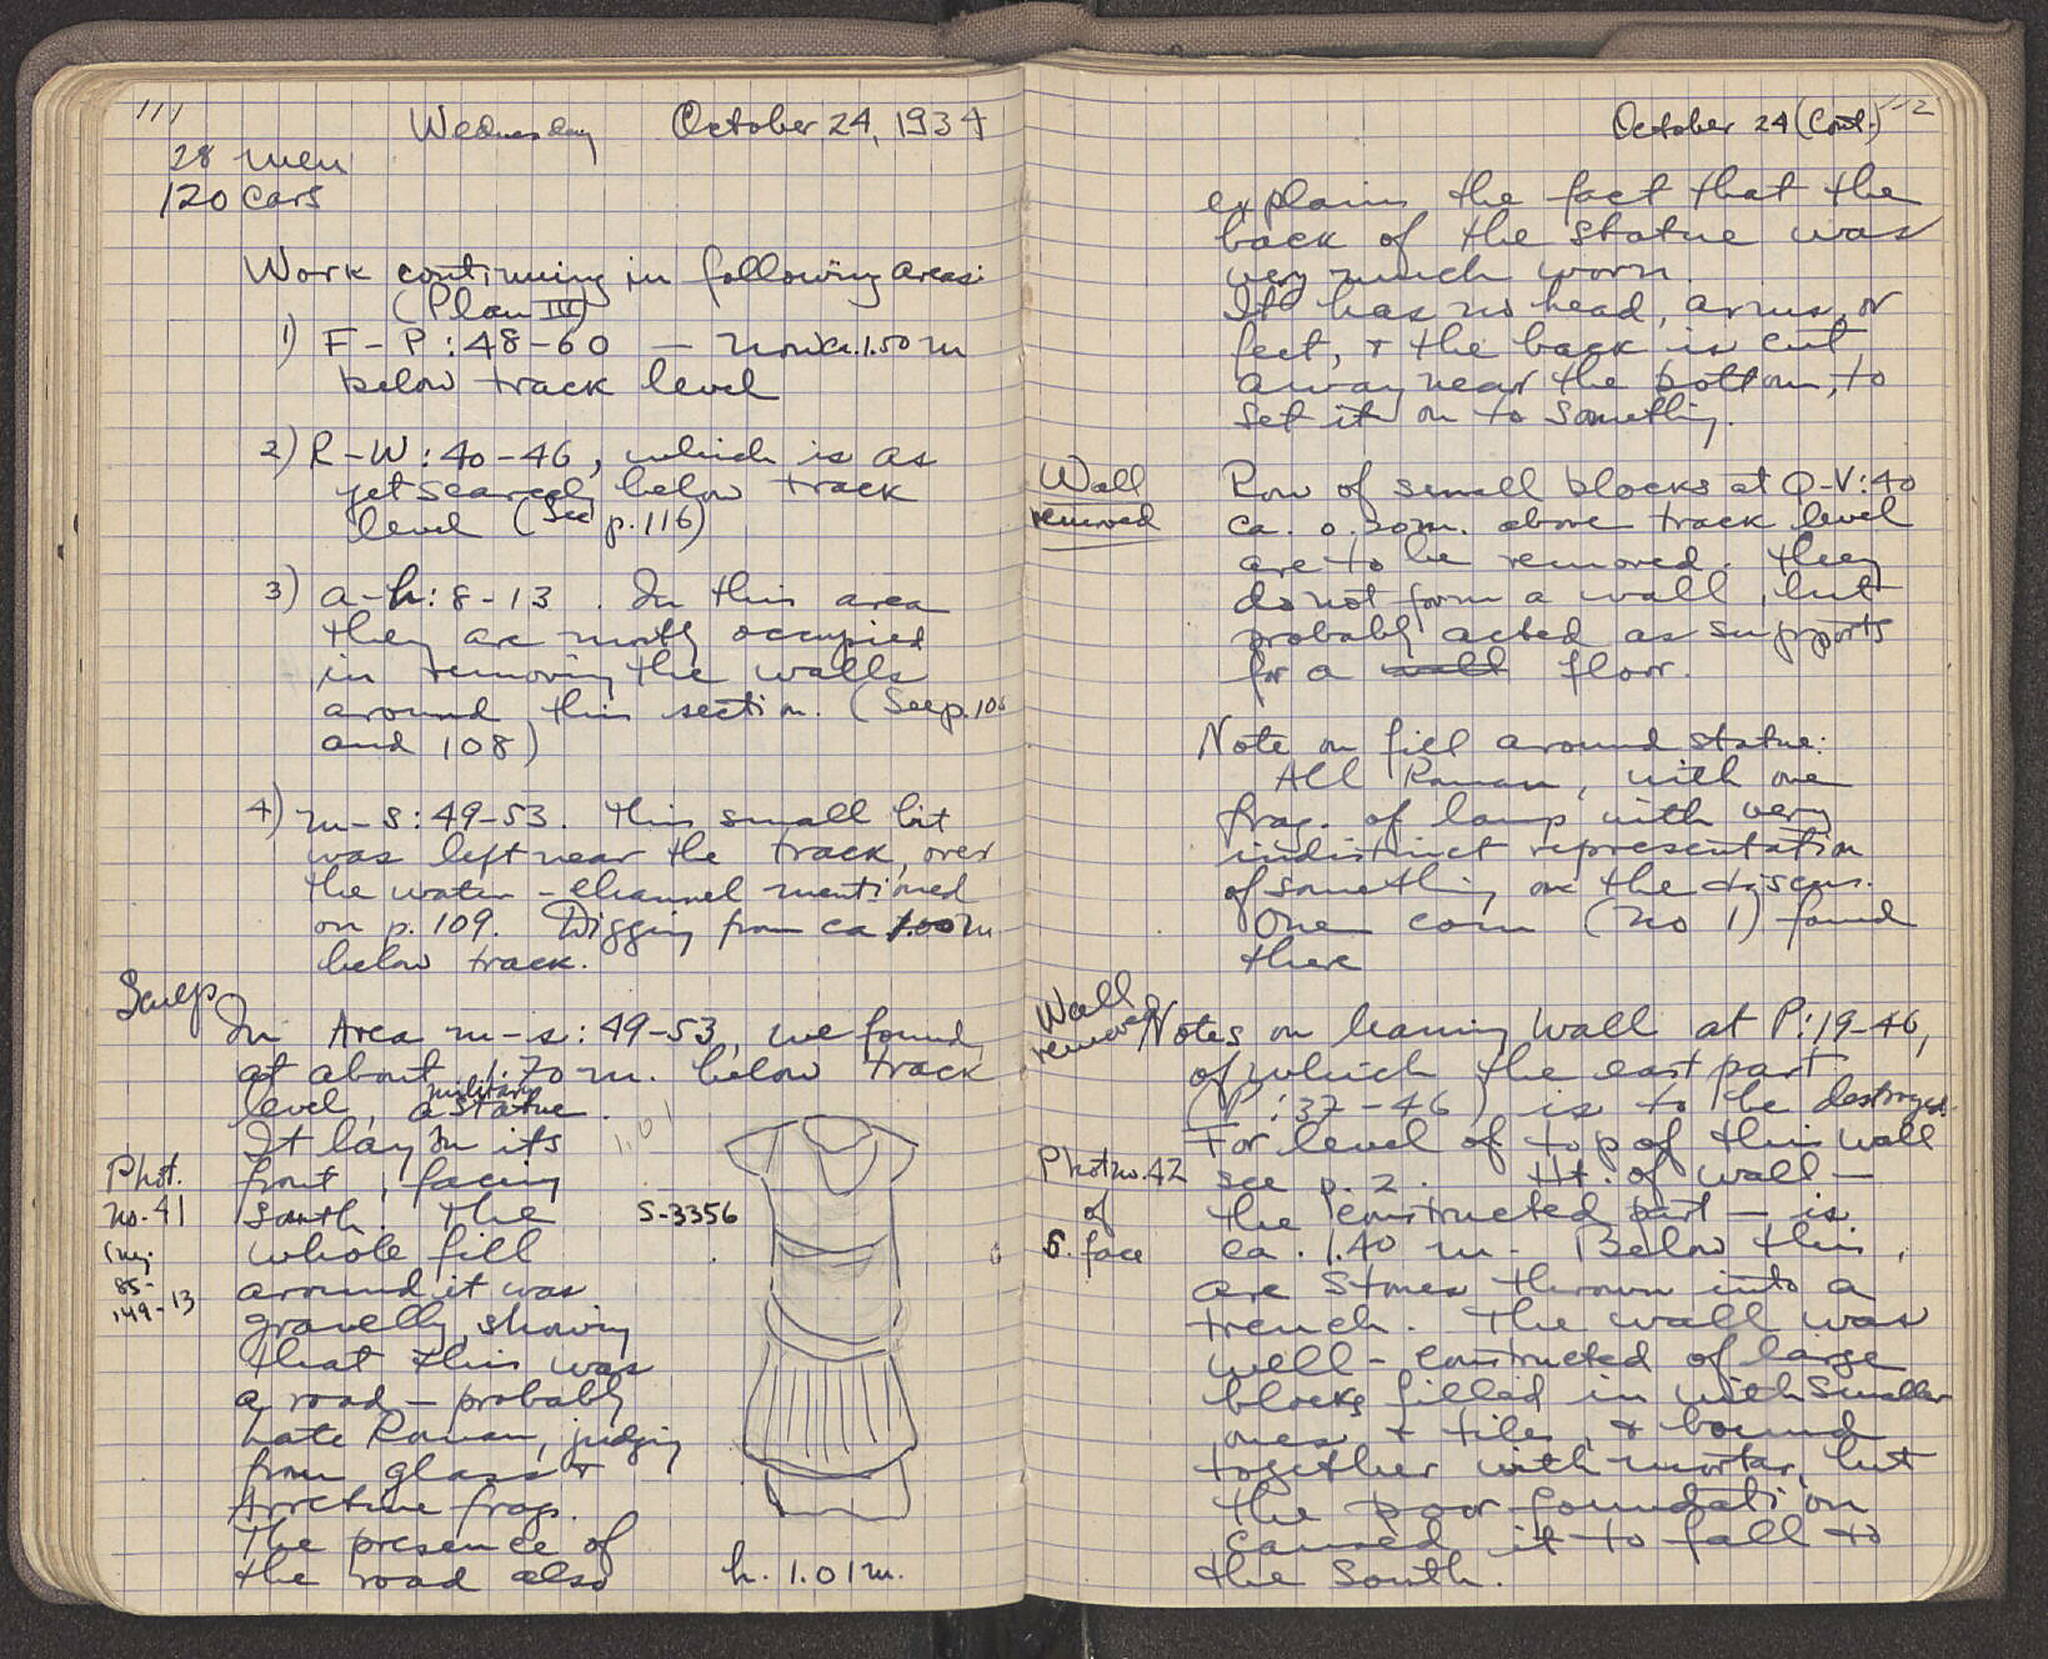 111
Wednesday October 24, 1934
28 men
120 cars
Work continuing in following areas:
(Plan III)
1) F-P:48-60 — now ca. 1.50 m
below track level
2) R-W:40-46, which is as
yet scarcely below track
level (See p. 116)
3) a-h:8-13. In this area
they are mostly occupied
in removing the walls
around this section. (See p. 106
and 108)
4) m-s:49-53. This small bit
was left near the track, over
the water-channel mentioned
on p. 109. Digging from ca 1.00 m
below track.
Sculp
In Area m-s:49-53, we found
at about 1.70 m. below track
level, a military statue.
It lay on its
front, facing
south. The
whole fill
around it was
gravelly, showing
that this was
a road — probably
Late Roman, judging
from glass +
Arretine frags.
The presence of
the road also
Phot.
no. 41
85-
149-13
1.01
S-3356
h. 1.01 m.
October 24 (Cont.) 112
explains the fact that the
back of the statue was
very much worn.
It has no head, arms, or
feet, + the back is cut
away near the bottom, to
set it on to something.
Wall
removed
Row of small blocks at Q-V:40
ca. 0.20 m. above track level
are to be removed. They
do not form a wall, but
probably acted as supports
for a wall floor.
Note on fill around statue:
All Roman, with one
frag. of lamp with very
indistinct representation
of something on the discus.
One coin (no 1) found
there
Wall
removed
Notes on leaning wall at P:19-46,
of which the east part
(P:37-46) is to be destroyed.
For level of top of this wall
see p. 2. Ht. of wall —
the constructed part — is
ca. 1.40 m. Below this,
are stones thrown into a
trench. The wall was
well-constructed of large
blocks filled in with smaller
ones + tiles, + bound
together with mortar, but
the poor foundation
caused it to fall to
the South.
Phot no. 42
of
S. face